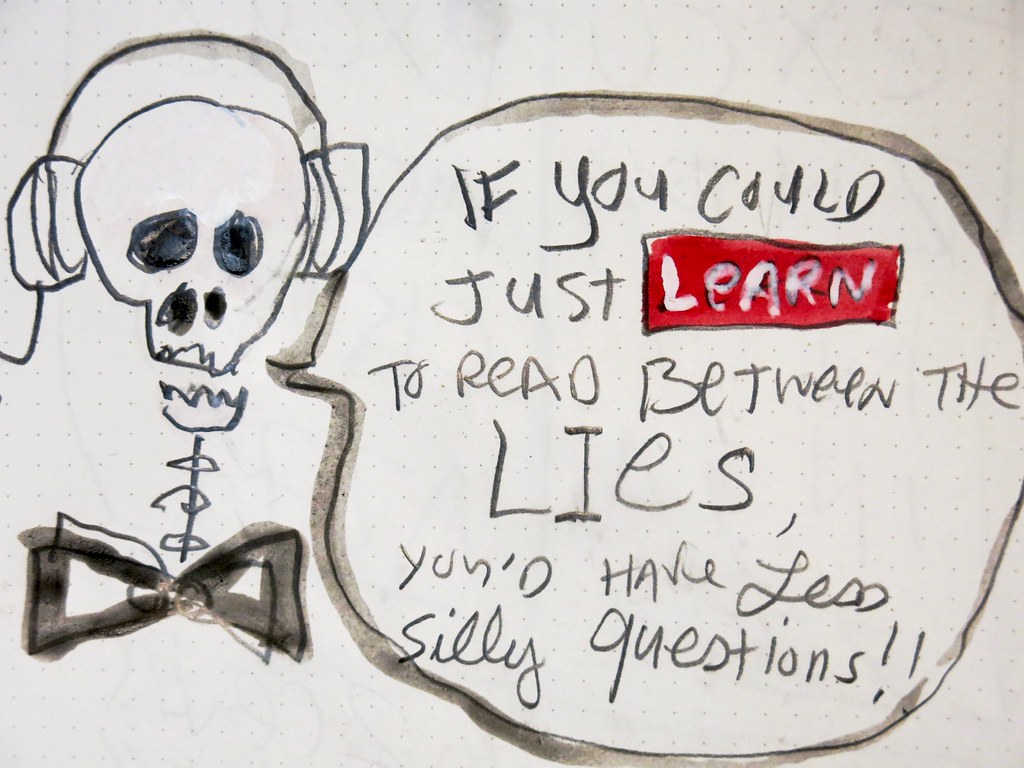 IF YOU COULD
JUST LEARN
TO READ BETWEEN THE
LIES,
YOU'D HAVE Less
Silly questions!!